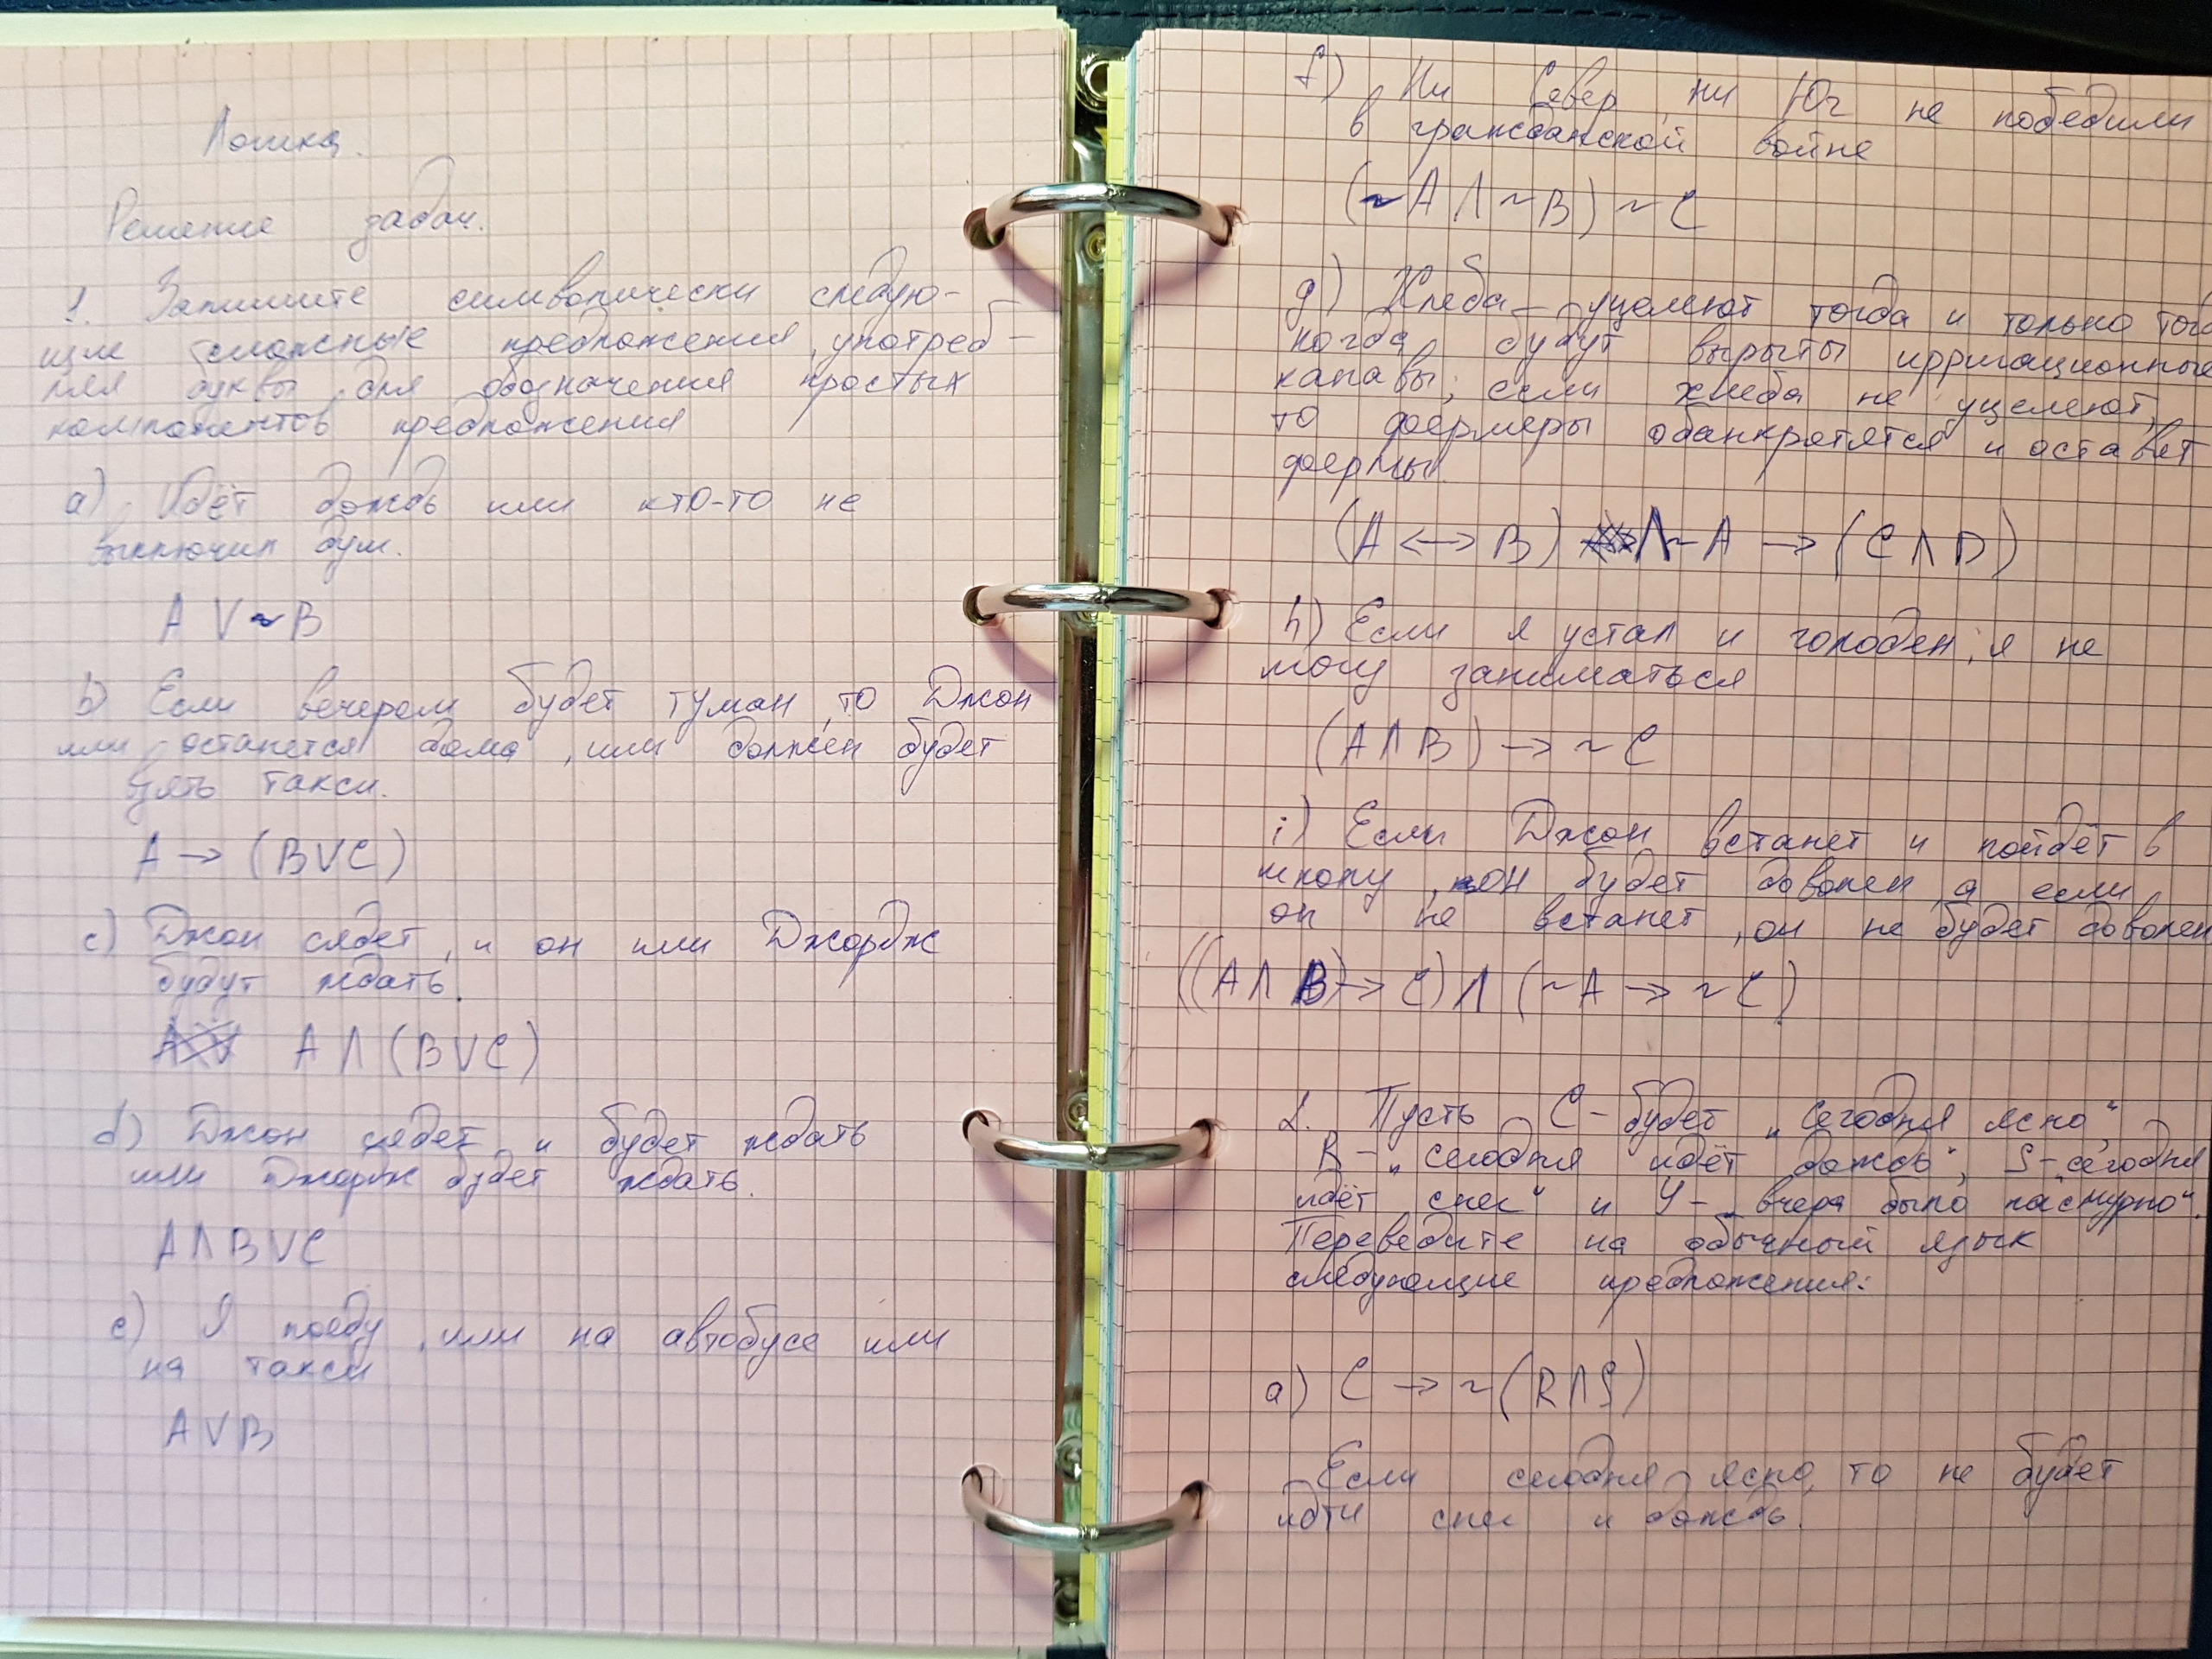 Логика.
Решение задач.
1. Запишите символически следую-
щие сложные предложения, употреб-
ляя буквы для обозначения простых
компонентов предложения
a) Идёт дождь или кто-то не
выключил душ.
A V ~ B
b) Если вечером будет туман, то Джон
или останется дома, или должен будет
взять такси.
A → (B V C)
c) Джон сядет, и он или Джордж
будут ждать.
A Λ (B V C)
d) Джон сядет и будет ждать
или Джордж будет ждать.
A Λ B V C
e) Я поеду, или на автобусе или
на такси
A V B
f) Ни Север, ни Юг не победили
в гражданской войне
(~ A Λ ~ B) ~ C
g) Хлеба уцелеют тогда и только тог
когда будут вырыты ирригационные
канавы; если хлеба не уцелеют,
то фермеры обанкротятся и оставят
фермы.
(A <—> B) Λ ~ A → (C Λ D)
h) Если я устал и голоден, я не
могу заниматься
(A Λ B) → ~ C
i) Если Джон встанет и пойдёт в
школу, он будет доволен, а если
он не встанет, он не будет доволен
((A Λ B) → C) Λ (~ A → ~ C)
2. Пусть C - будет „сегодня ясно",
R - „сегодня идёт дождь", S - сегодня
идёт снег" и Y - „вчера было пасмурно".
Переведите на обычный язык
следующие предложения:
a) C → ~ (R Λ S)
Если сегодня ясно, то не будет
идти снег и дождь.